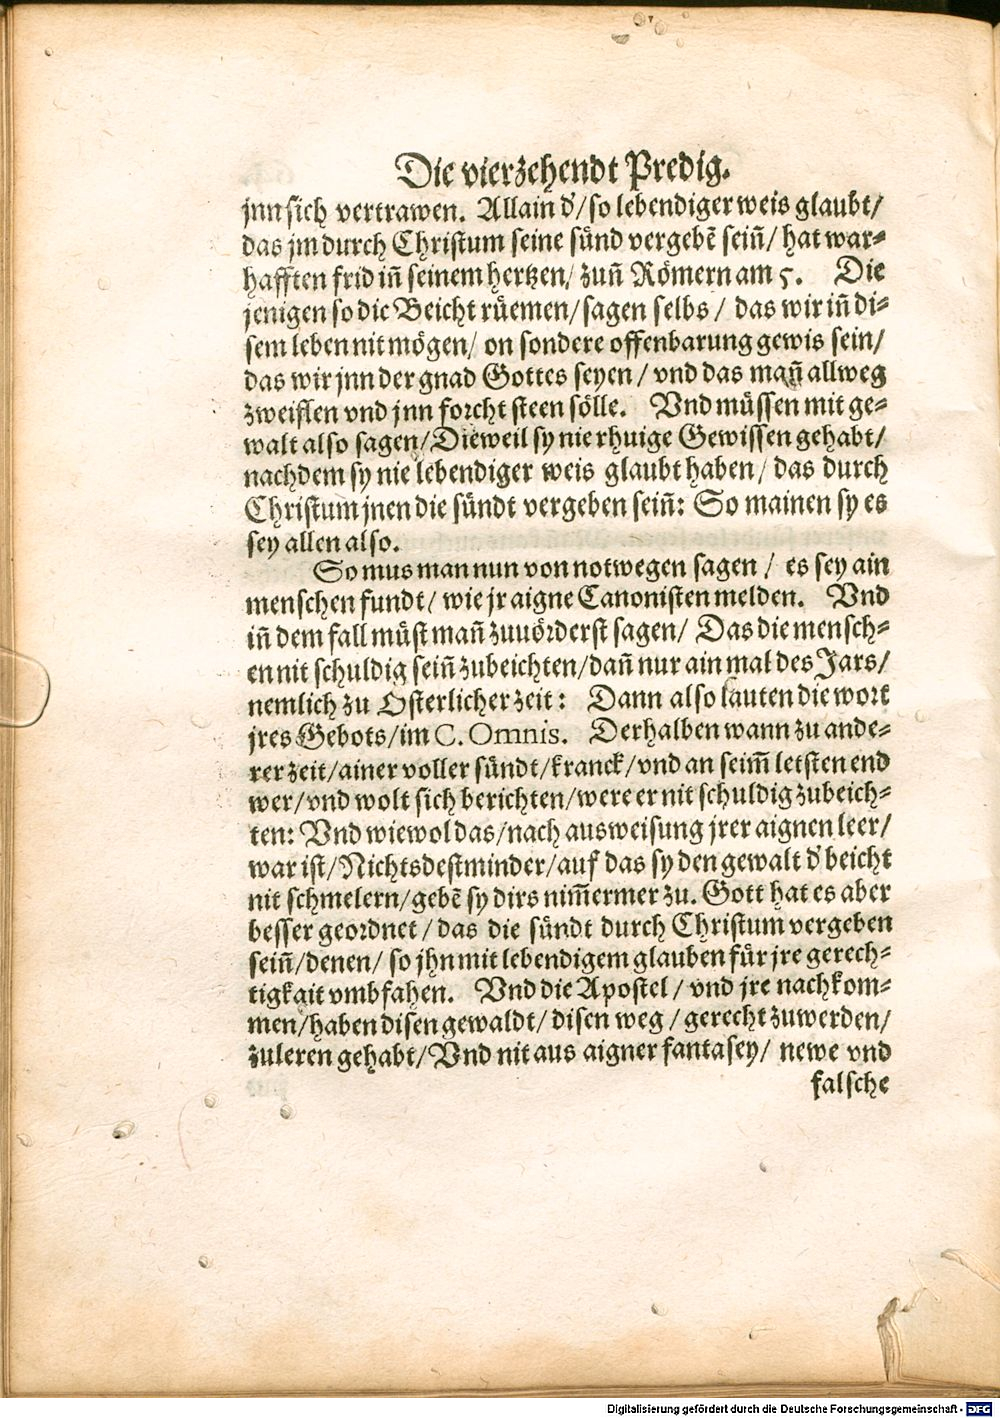 Die vierzehendt Predig.
jnn sich vertrawen. Allain d'/ so lebendiger weis glaubt/
das jm durch Christum seine sünd vergebē sein̄/ hat war-
hafften frid in̄ seinem hertzen/ zun̄ Römern am 5. Die
jenigen so die Beicht rüemen/ sagen selbs / das wir in̄ di-
sem leben nit mögen/ on sondere offenbarung gewis sein/
das wir jnn der gnad Gottes seyen / vnd das man̄ allweg
zweiflen vnd jnn forcht steen sölle. Vnd müssen mit ge-
walt also sagen/ Dieweil sy nie rhuige Gewissen gehabt/
nachdem sy nie lebendiger weis glaubt haben / das durch
Christum jnen die sündt vergeben sein̄: So mainen sy es
sey allen also.
So mus man nun von notwegen sagen / es sey ain
menschen fundt/ wie jr aigne Canonisten melden. Vnd
in̄ dem fall müst man̄ zuuörderst sagen/ Das die mensch-
en nit schuldig sein̄ zubeichten/ dan̄ nur ain mal des Jars/
nemlich zu Osterlicher zeit: Dann also lauten die wort
jres Gebots/ im C. Omnis. Derhalben wann zu ande-
rer zeit/ ainer voller sündt/ kranck/ vnd an seim̄ letsten end
wer/ vnd wolt sich berichten/ were er nit schuldig zubeich-
ten: Vnd wiewol das/ nach ausweisung jrer aignen leer/
war ist/ Nichtsdestminder/ auf das sy den gewalt d' beicht
nit schmelern/ gebē sy dirs nim̄ermer zu. Gott hat es aber
besser geordnet / das die sündt durch Christum vergeben
sein̄/ denen/ so jhn mit lebendigem glauben für jre gerech-
tigkait vmbfahen. Vnd die Apostel / vnd jre nachkom-
men/ haben disen gewaldt/ disen weg / gerecht zuwerden/
zuleren gehabt/ Vnd nit aus aigner fantasey/ newe vnd
falsche
Digitalisierung gefördert durch die Deutsche Forschungsgemeinschaft - DFG